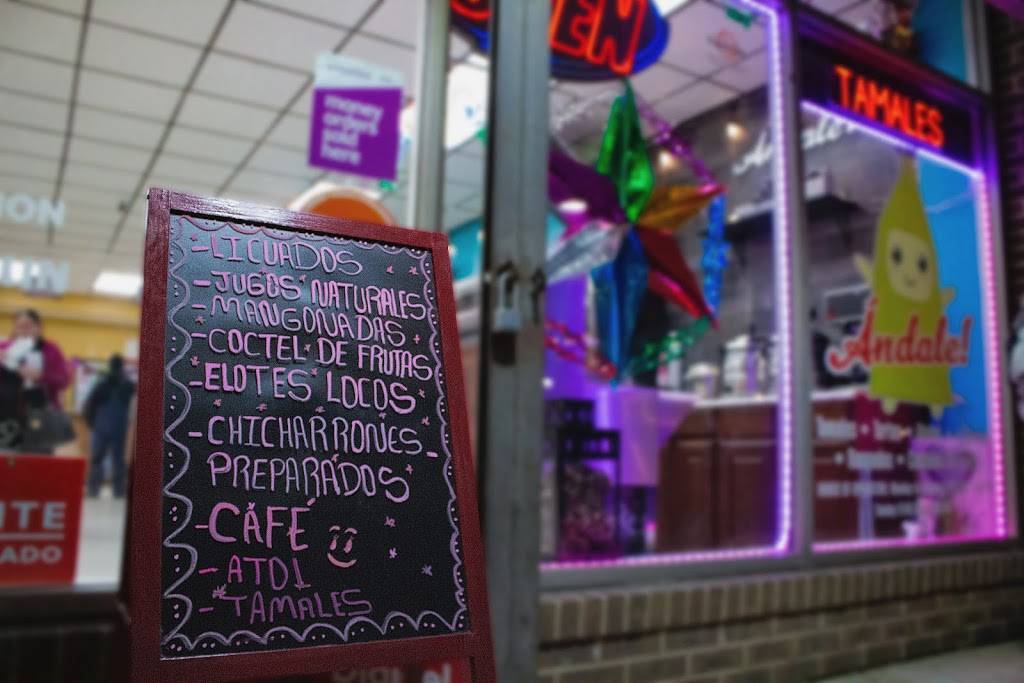 OPEN
TAMALES
money
orders
sold
here
ION
-LICUADOS
-JUGOS NATURALES
-MANGONADAS
-COCTEL DE FRUTAS
-ELOTES LOCOS
-CHICHARRONES-
PREPARADOS
-CAFÉ
-ATOL
-TAMALES
Ándale!
ITE
ADO